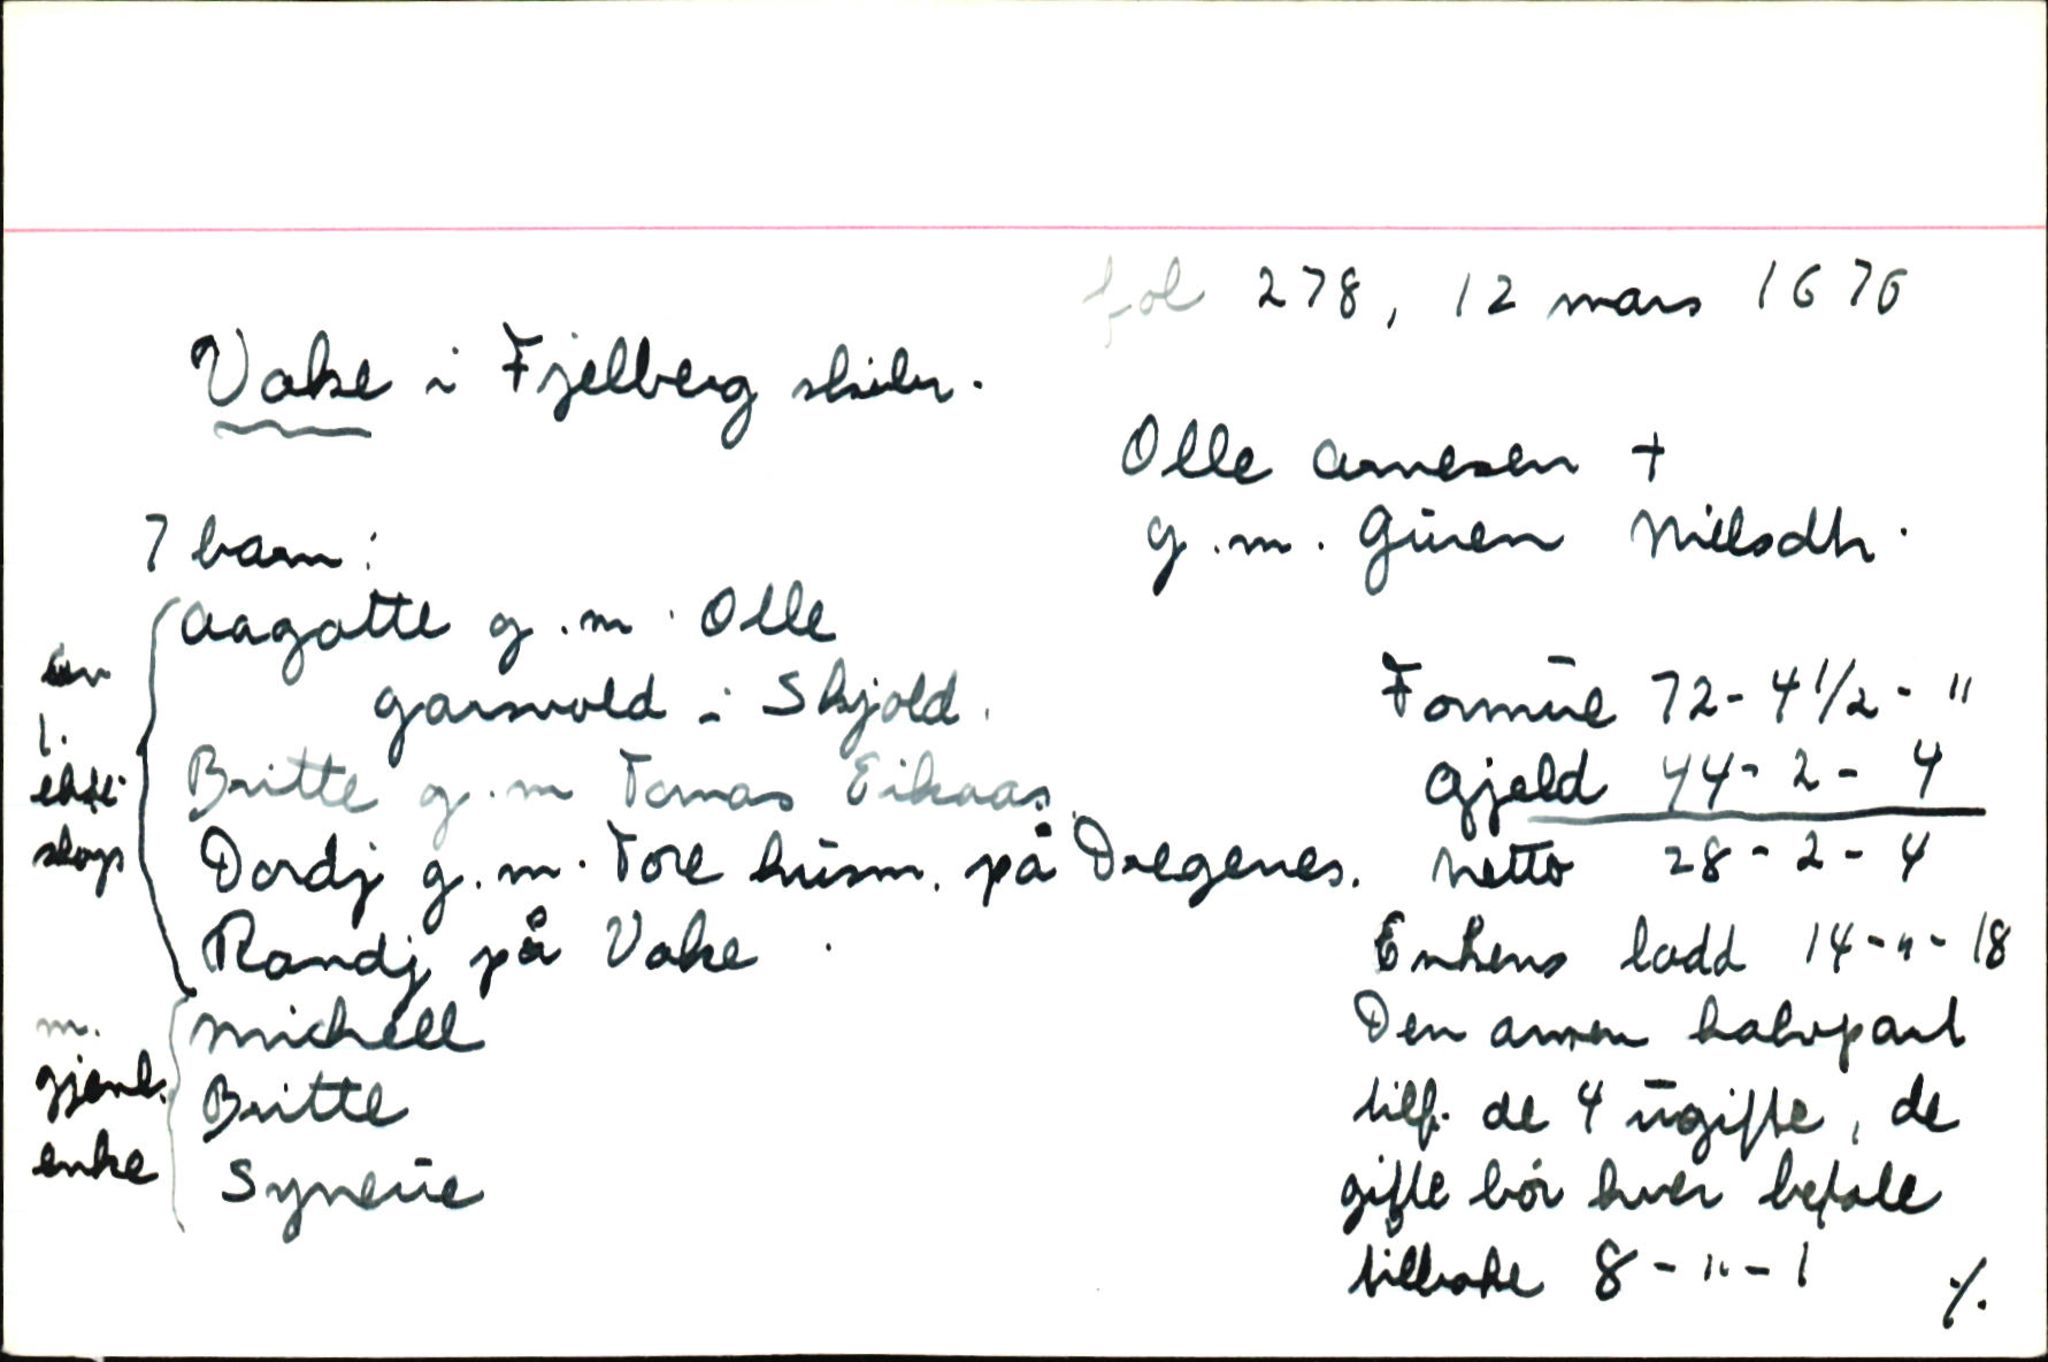 fol 278, 12 mars 1676
Vake i Fjelberg skibr.
Olle Arnesen +
g.m. Güren Nielsdtr.
7 barn:
Aagotte g.m. Olle
Garsvold i Skjold.
Britte g.m Tomas Eikaas.
Dordj g.m. Tore hüsm. på Dregenes.
Randj på Vake.
l.
ekte
skap
Michell
Britte
Syneüe
m.
gjenl.
enke
Formüe 72-4 1/2-"
Gjeld 44-2-4
Netto 28-2-4
Enkens lodd 14-"-18
Den annen halvpart
tilf. de 4 ügifte, de
gifte bör hver betale
tilbake 8-"-1
./.